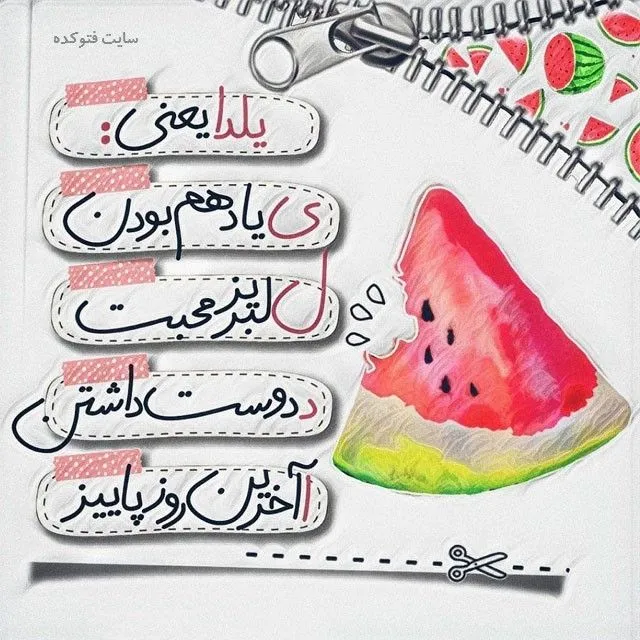 سایت فتوکده
یلدا یعنی:
ی یاد هم بودن
ل لبریز محبت
د دوست داشتن
ا آخرین روز پاییز